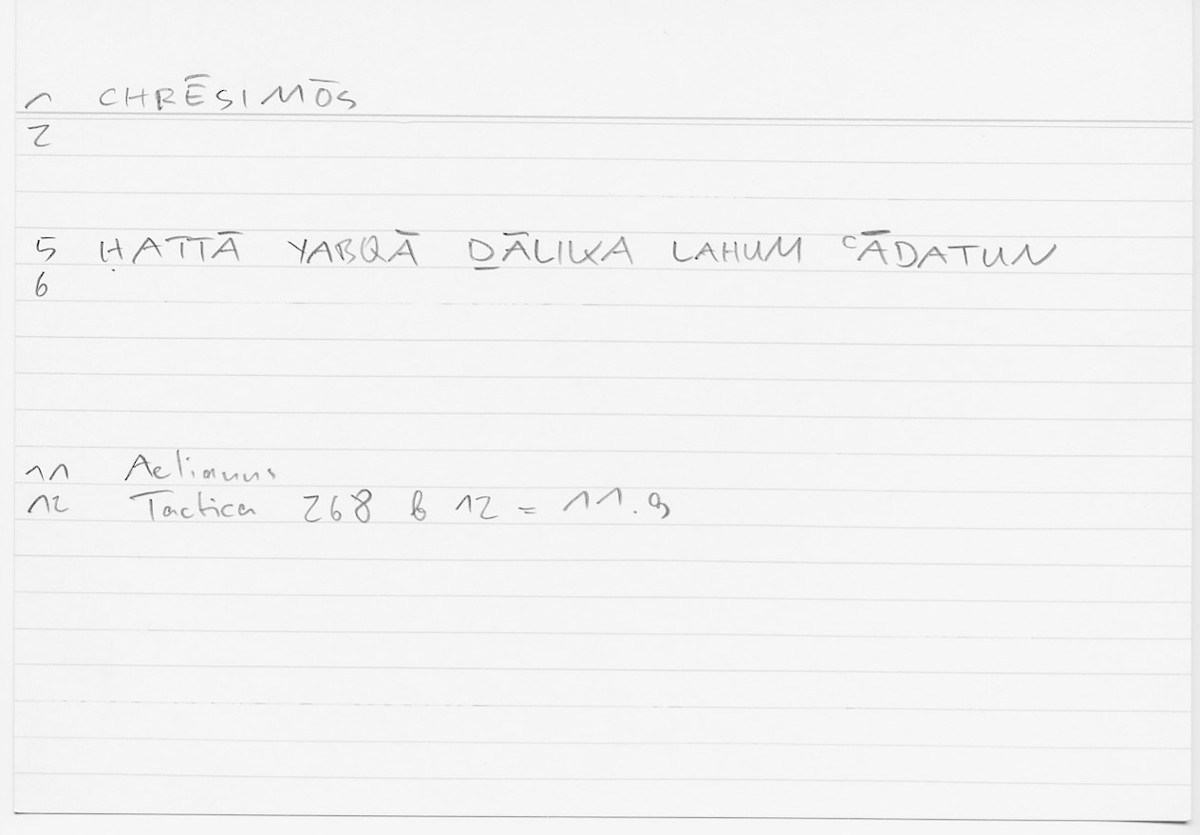 1 CHRĒSIMŌS
2
5 ḤATTĀ YABQĀ ḎĀLIKA LAHUM ʿĀDATUN
6
11 Aelianus
12 Tactica 268 b 12 = 11.9